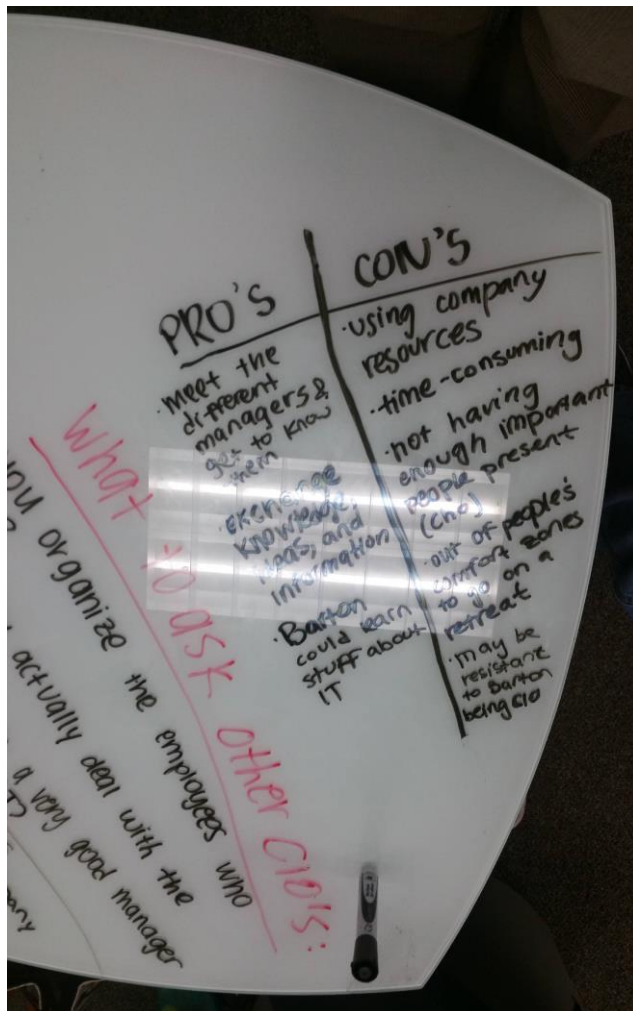 PRO'S
·meet the
different
managers &
get to know
them
·exchange
knowledge,
ideas, and
information
·Barton
could learn
stuff about
IT
CON'S
·using company
resources
·time-consuming
·not having
enough important
people present
(cho)
·out of people's
comfort zones
to go on a
retreat
·may be
resistant
to Barton
being CIO
What to ask other CIO's:
you organize the employees who
actually deal with the
a very good manager